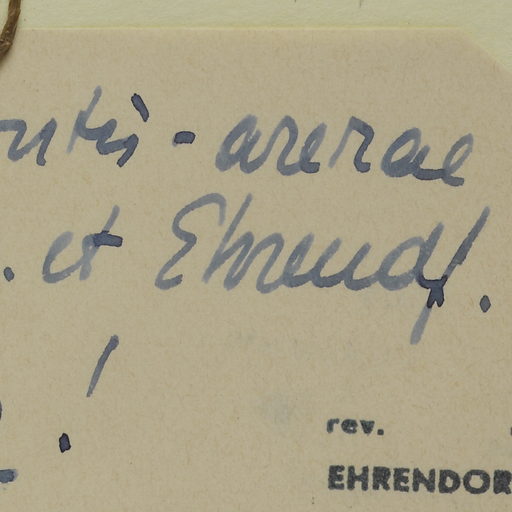 ontis-arerae
. et Ehrendf.
!
rev.
EHRENDOR